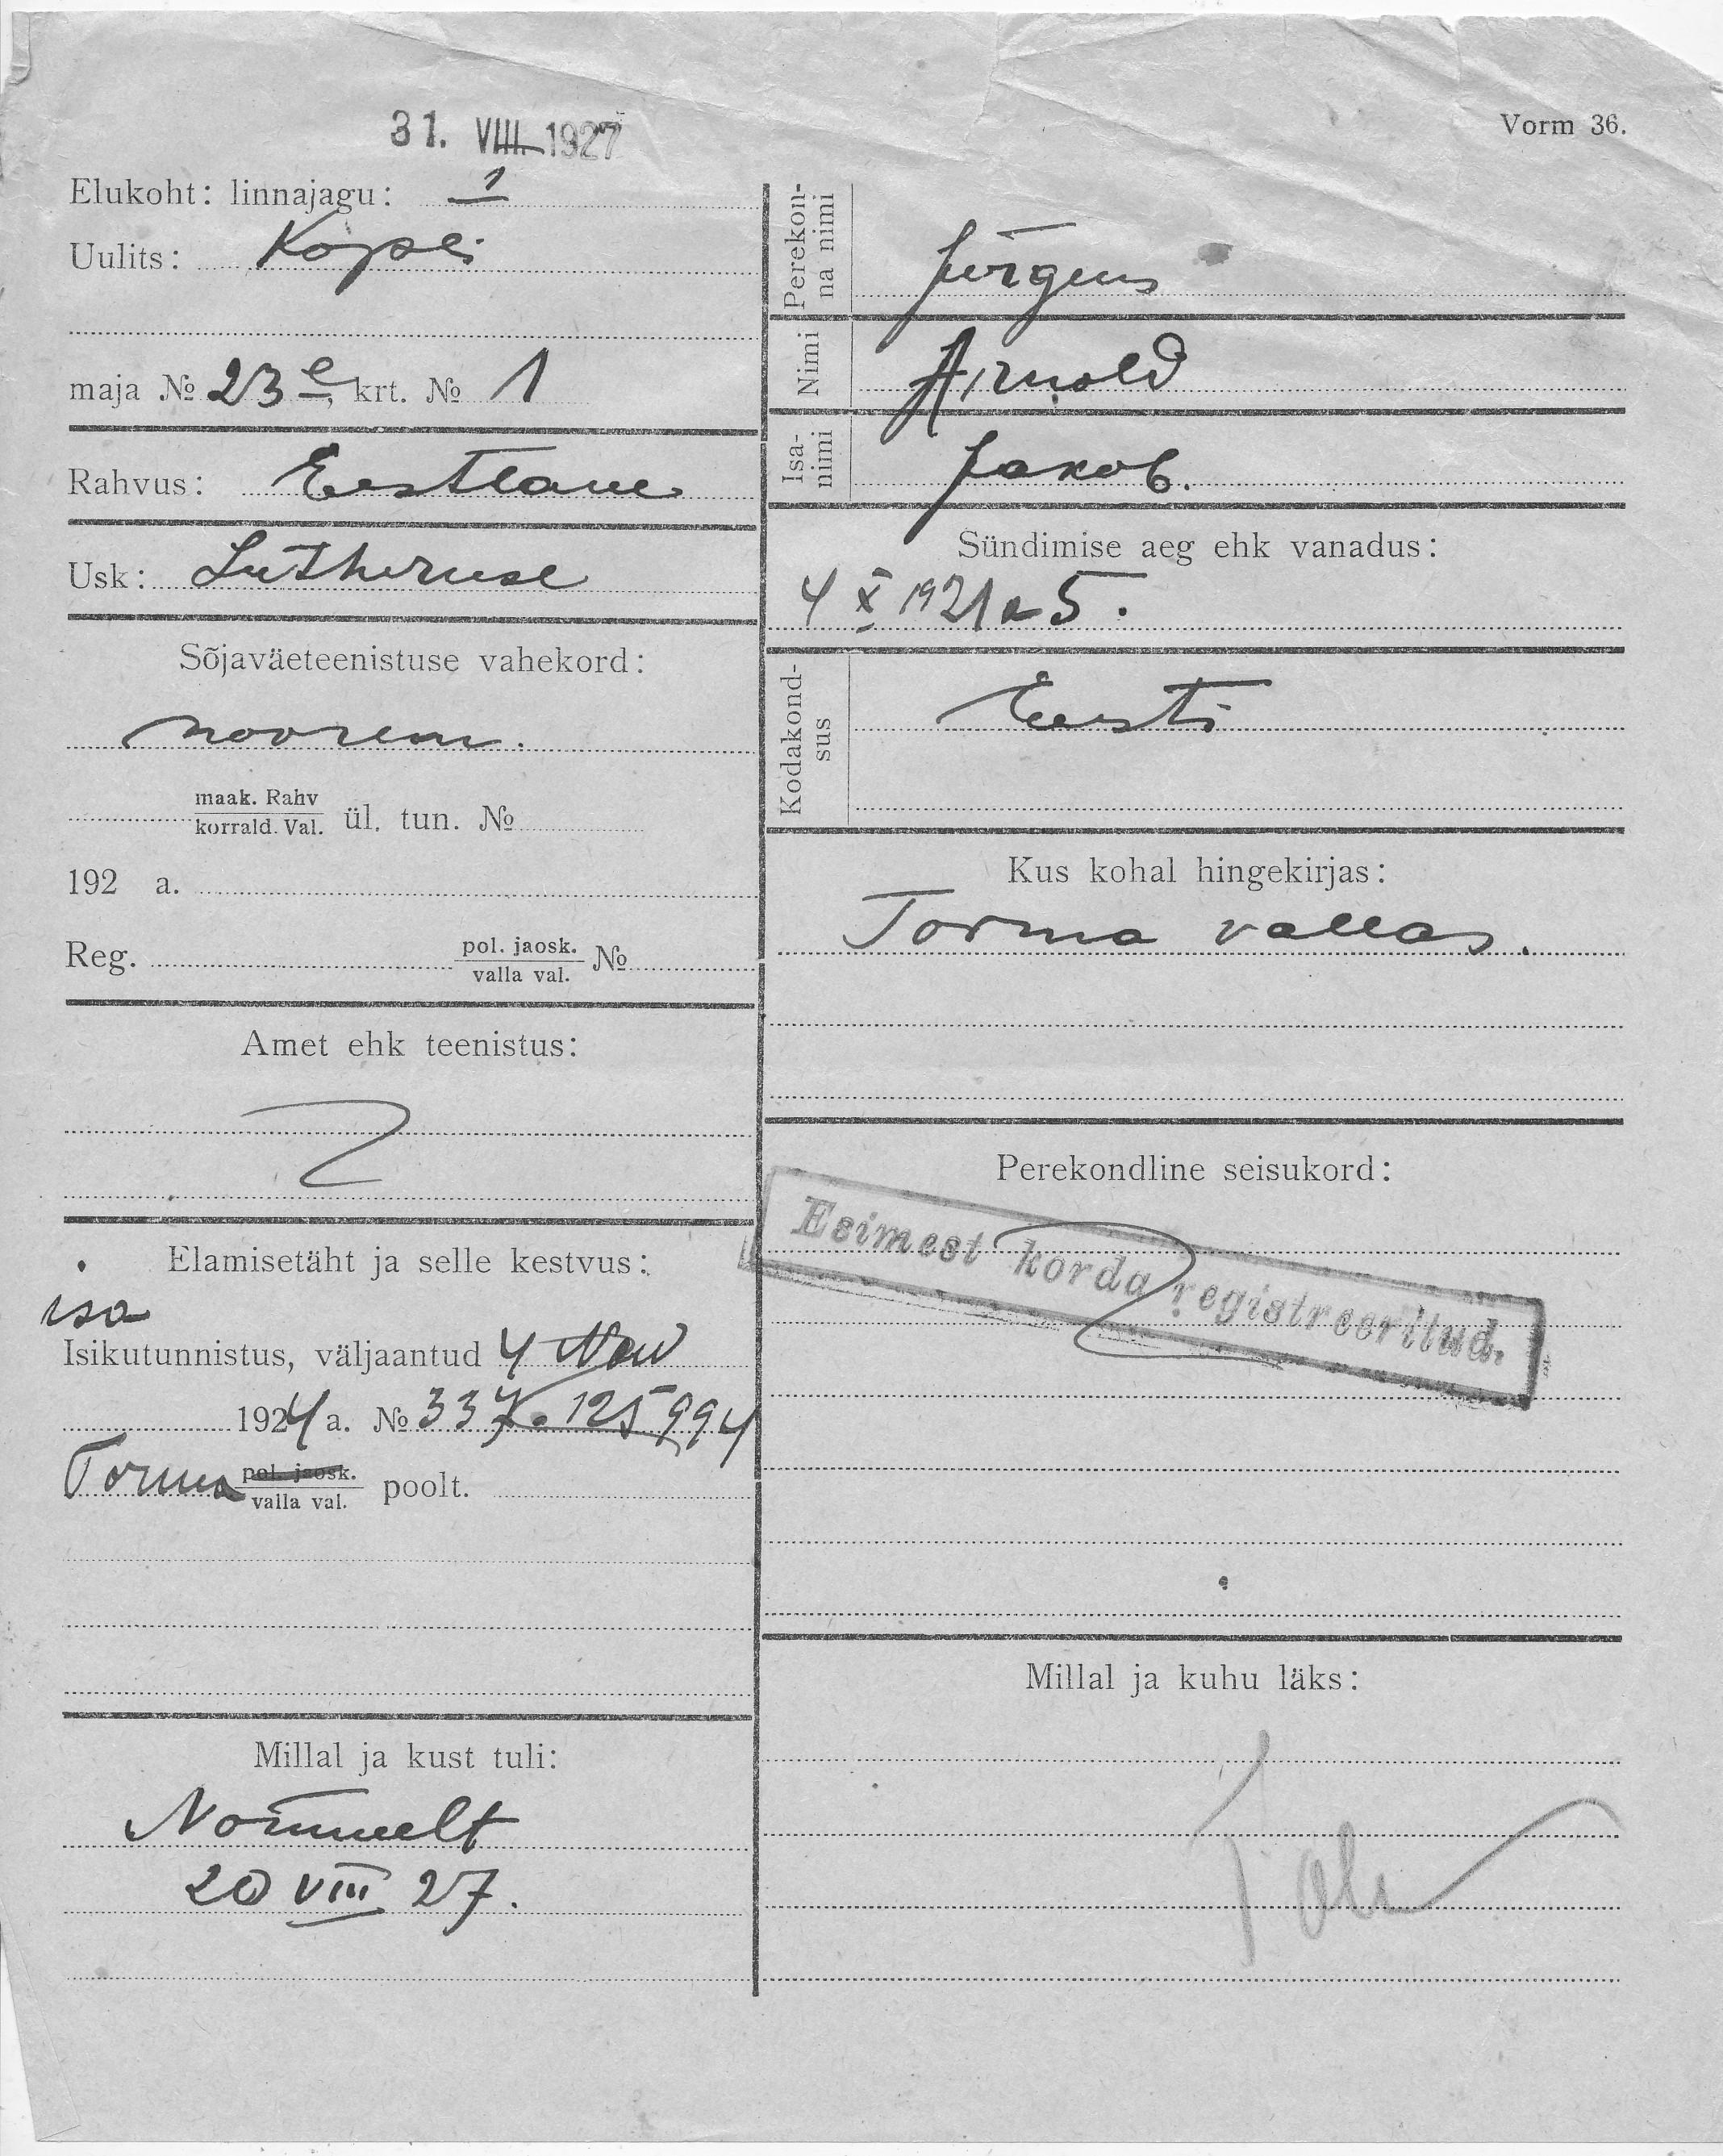 31. VIII. 1927
Vorm 36.
Elukoht: linnajagu: 1
Uulits: Kopli
maja № 23 e, krt. № 1
Rahvus: Eestlane
Usk: Lutheruse
Sõjaväeteenistuse vahekord:
noorem.
maak. Rahv
korrald. Val. ül. tun. №
192 a.
Reg. pol. jaosk.
valla val. №
Amet ehk teenistus:
Elamisetäht ja selle kestvus:
isa
Isikutunnistus, väljaantud 4 Nov
1924 a. №
Torma pol. jaosk.
valla val. poolt.
Millal ja kust tuli:
Nõmmelt
20 VIII 27.
Perekon-
na nimi Jürgens
Nimi Arnold
Isa-
nimi Jakob.
Sündimise aeg ehk vanadus:
4 X 1921 a 5.
Kodakond-
sus Eesti
Kus kohal hingekirjas:
Torma vallas.
Perekondline seisukord:
Esimest korda registreeritud.
Millal ja kuhu läks: